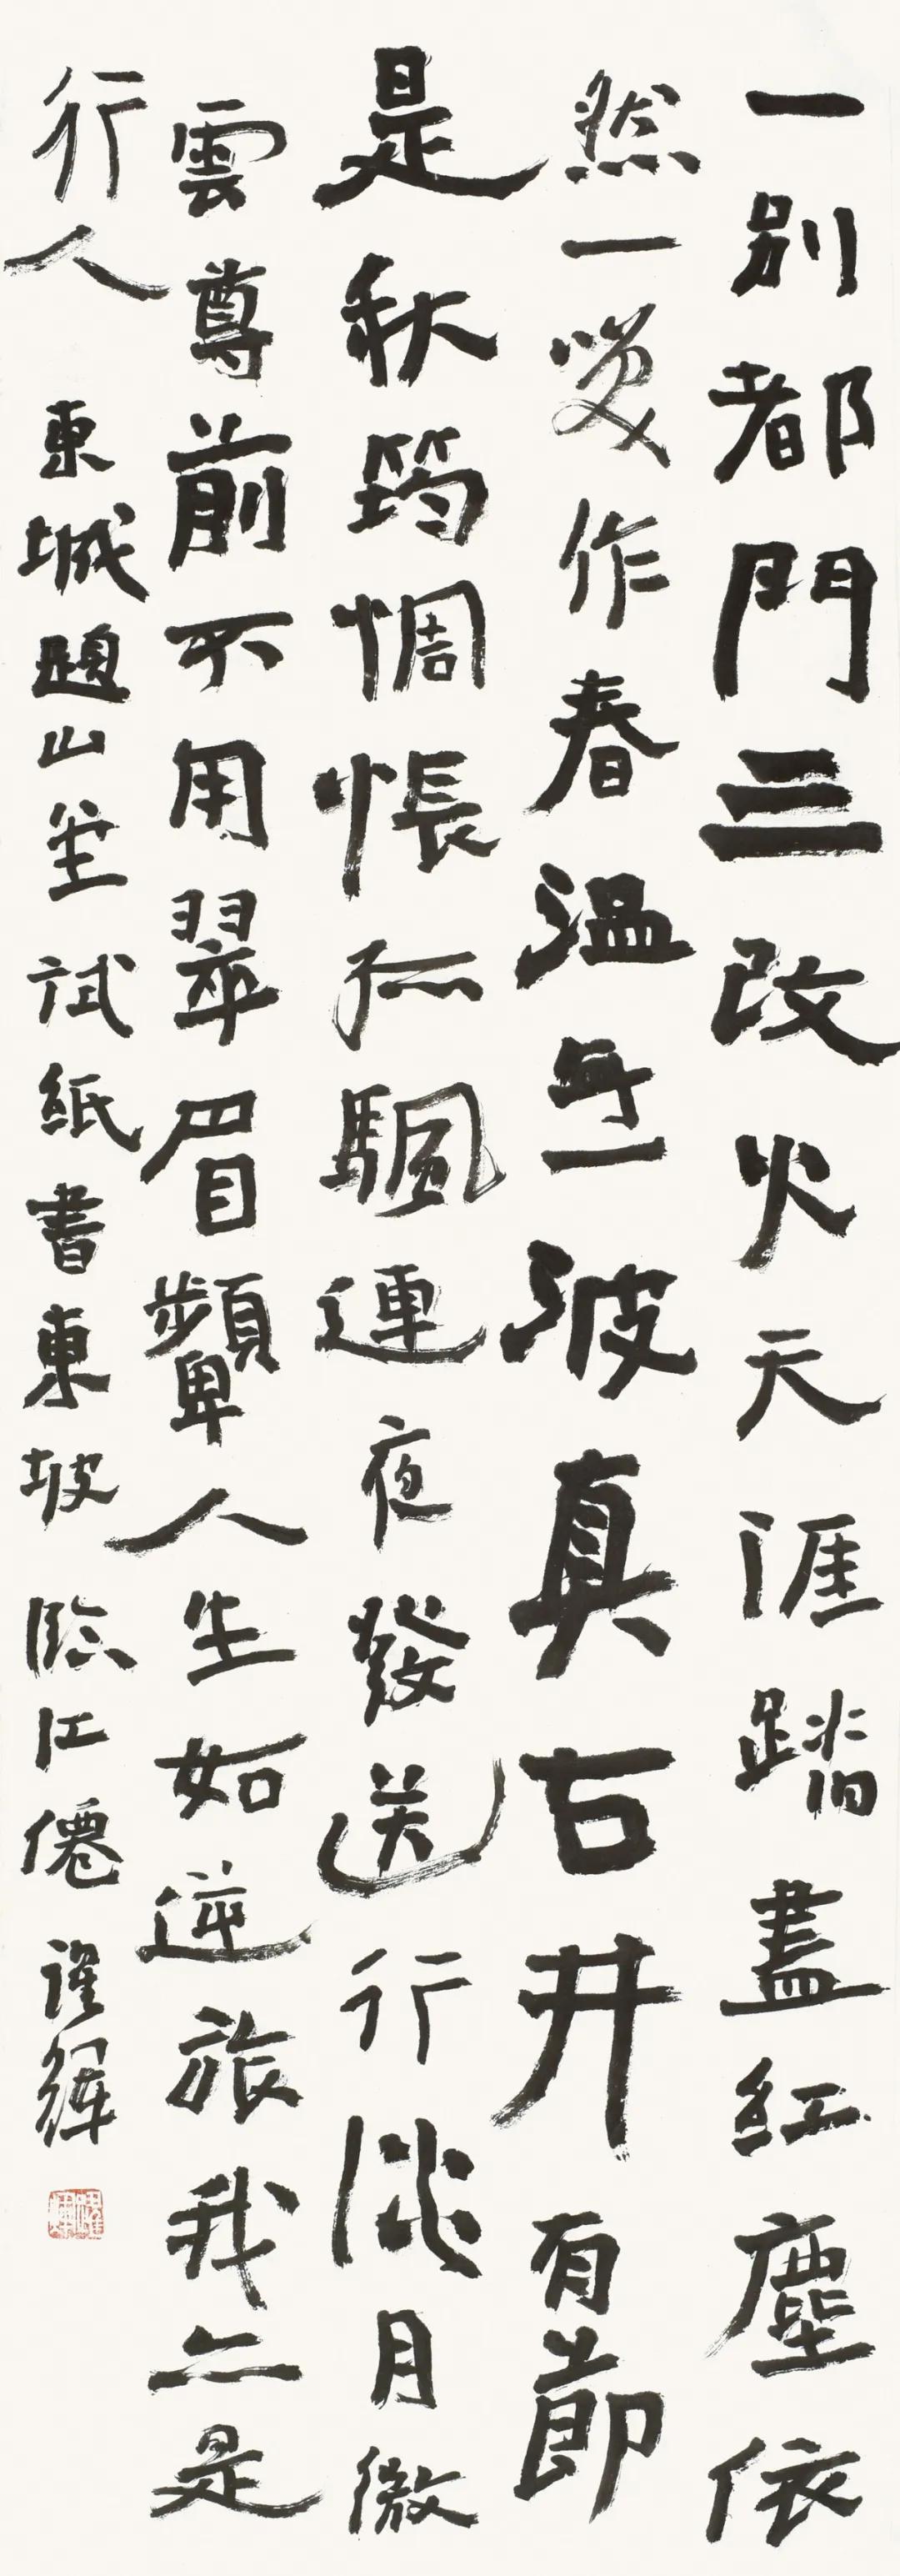 一别都門三改火天涯踏盡紅塵依
然一笑作春温無波真古井有節
是秋筠惆悵孤颿連夜發送行淡月微
雲尊前不用翠眉顰人生如逆旅我亦是
行人
東城題山堂試紙書東坡臨江僊謹輝